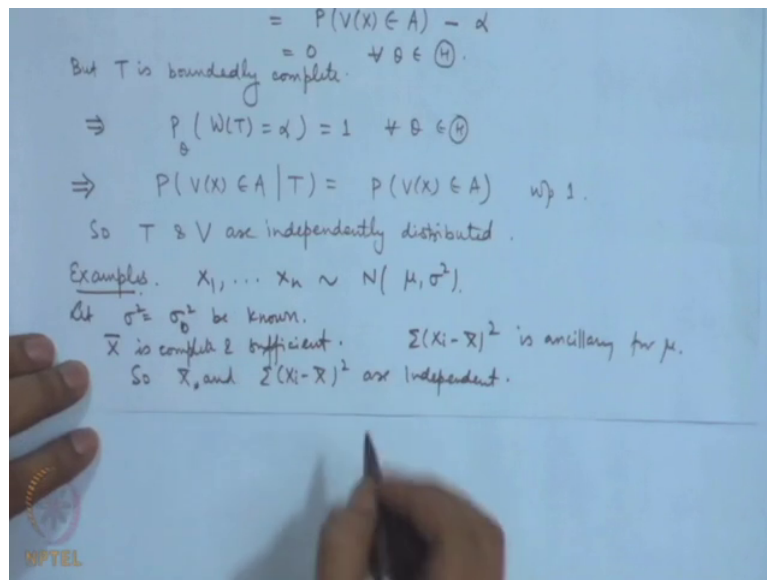 = P(V(X) ∈ A) - α
= 0 ∀ θ ∈ Ⓗ.
But T is boundedly complete.
⇒ P_θ (W(T) = α) = 1 ∀ θ ∈ Ⓗ
⇒ P(V(X) ∈ A | T) = P(V(X) ∈ A) wp 1.
So T & V are independently distributed.
Examples. X₁, ... Xₙ ~ N(μ, σ²).
Let σ² = σ₀² be known.
X̄ is complete & sufficient. Σ(Xi - X̄)² is ancillary for μ.
So X̄, and Σ(Xi - X̄)² are independent.
NPTEL